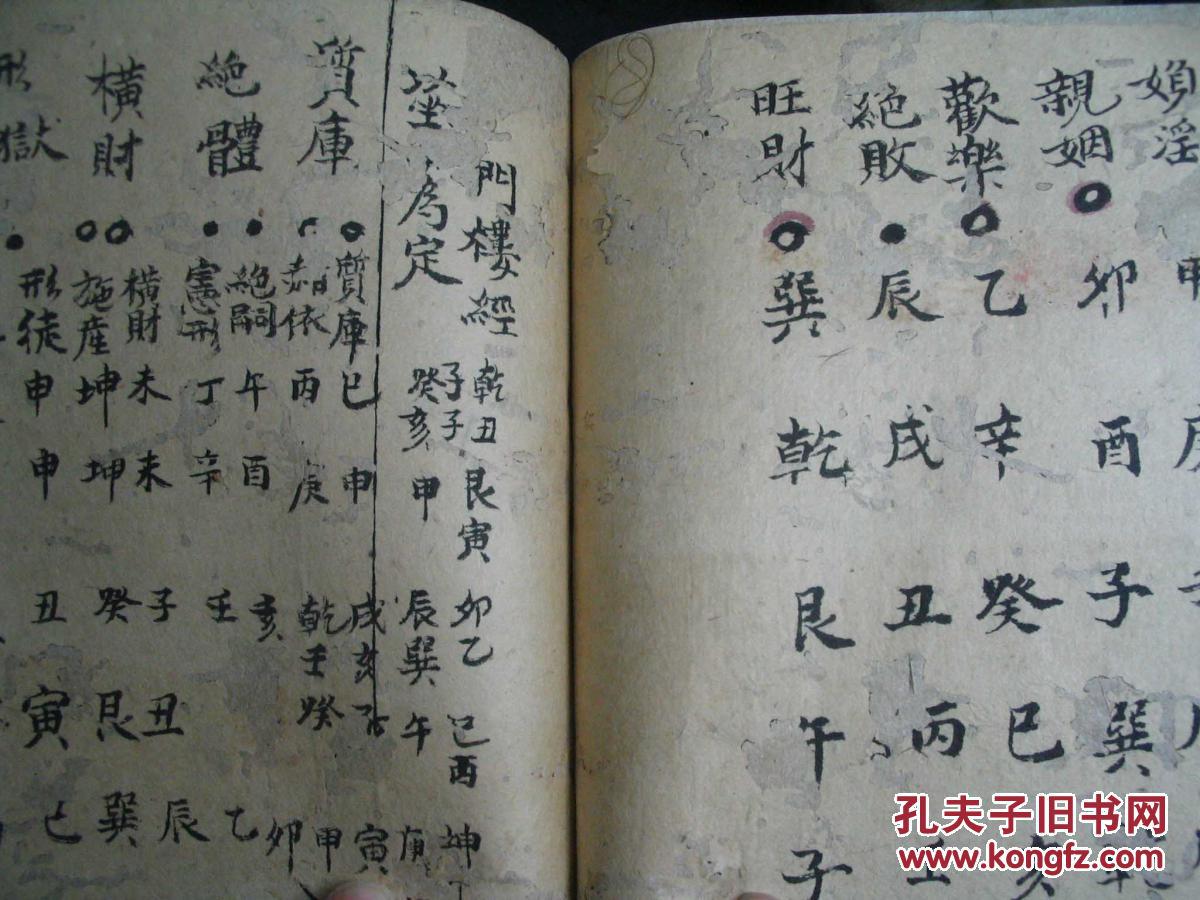 淫
親姻 卯 酉 子 巽
歡樂 乙 辛 癸 巳 亥
絕敗 辰 戌 丑 丙 壬
旺財 巽 乾 艮 午 子
門樓經 乾丑艮寅 卯乙 巳丙 坤
坐為定 子子 癸亥甲 辰巽午 庚
質庫 質庫 巳 申 戌亥
丙 庚 乾壬癸 寅
絕體 絕嗣 午 酉 亥 甲
憲形 丁 辛 壬 卯
橫財 橫財 未 未 子 丑 辰 乙
施產 坤 坤 癸 艮 巽
形獄 形徒 申 申 丑 寅 巳
孔夫子旧书网
www.kongfz.com